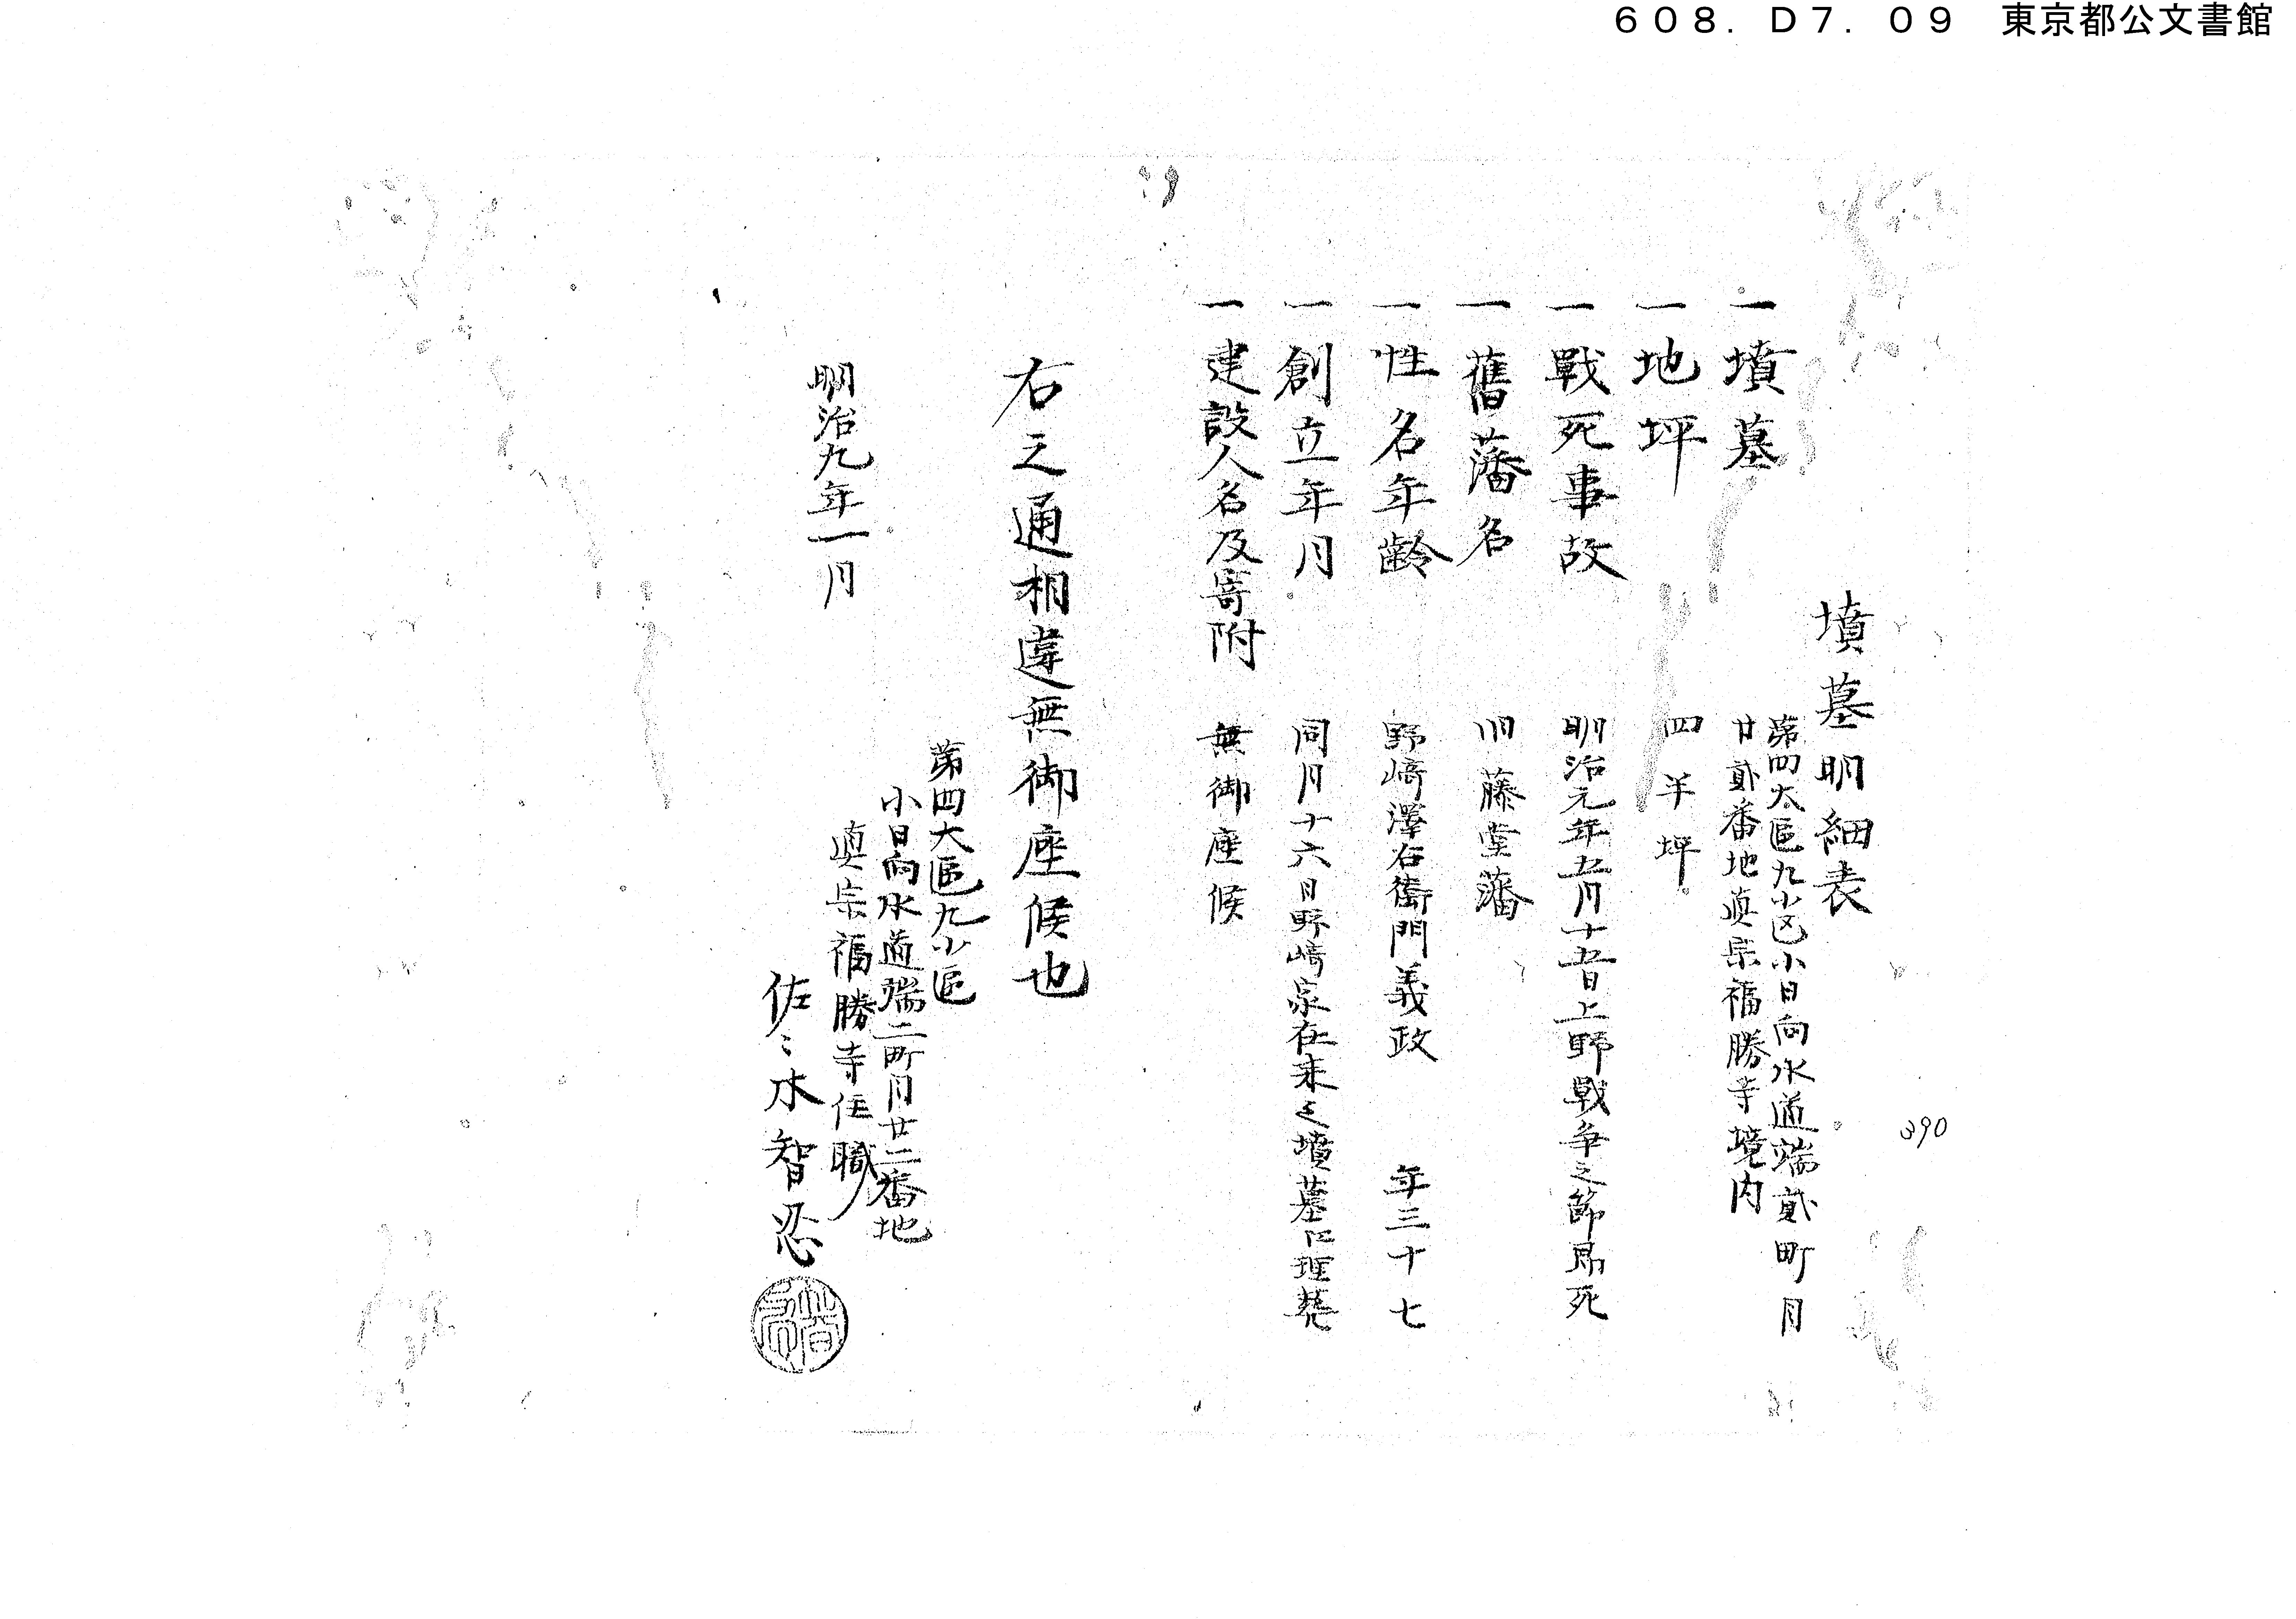 ６０８．Ｄ７．０９　東京都公文書館
墳墓明細表
一墳墓　第四大區九小区小日向水道端貳町目
廿貳番地真宗福勝寺境内
一地坪　四半坪
一戰死事故　明治元年五月十五日上野戰争之節即死
一舊藩名　旧藤堂藩
一性名年齢　野﨑澤右衛門義政　年三十七
一創立年月　同月十六日野﨑家在来之墳墓に埋葬
一建設人名及寄附　無御座候
右之通相違無御座候也
第四大區九小區
小日向水道端二町目廿二番地
真宗福勝寺住職
明治九年一月
佐々木智忍
390